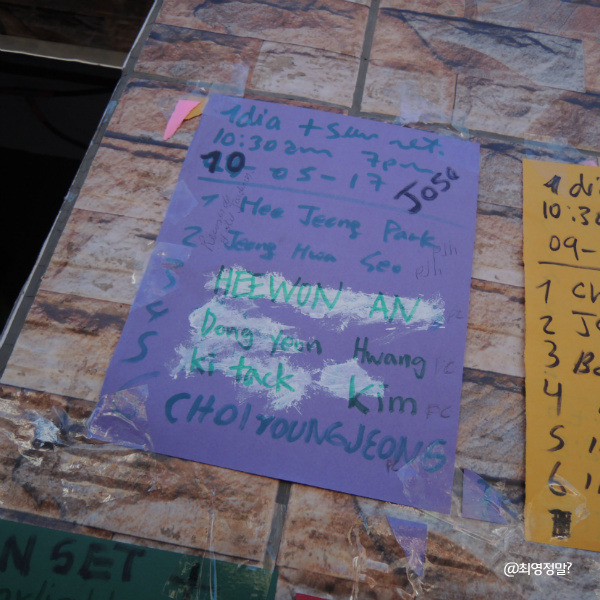 1 dia + sun set.
10:30am 7pm
10 - 05 - 17 JOSE
1 Hee Jeong Park
2 Jeong Hwa Seo
3 HEEWON AN
4 Dong Yeon Hwang FC
5 ki tack Kim FC
6 CHOI YOUNGJEONG
1 di
10:3
09-
1 CH
2 JO
3 Bo
4
5
6
N SET
@최영정말?